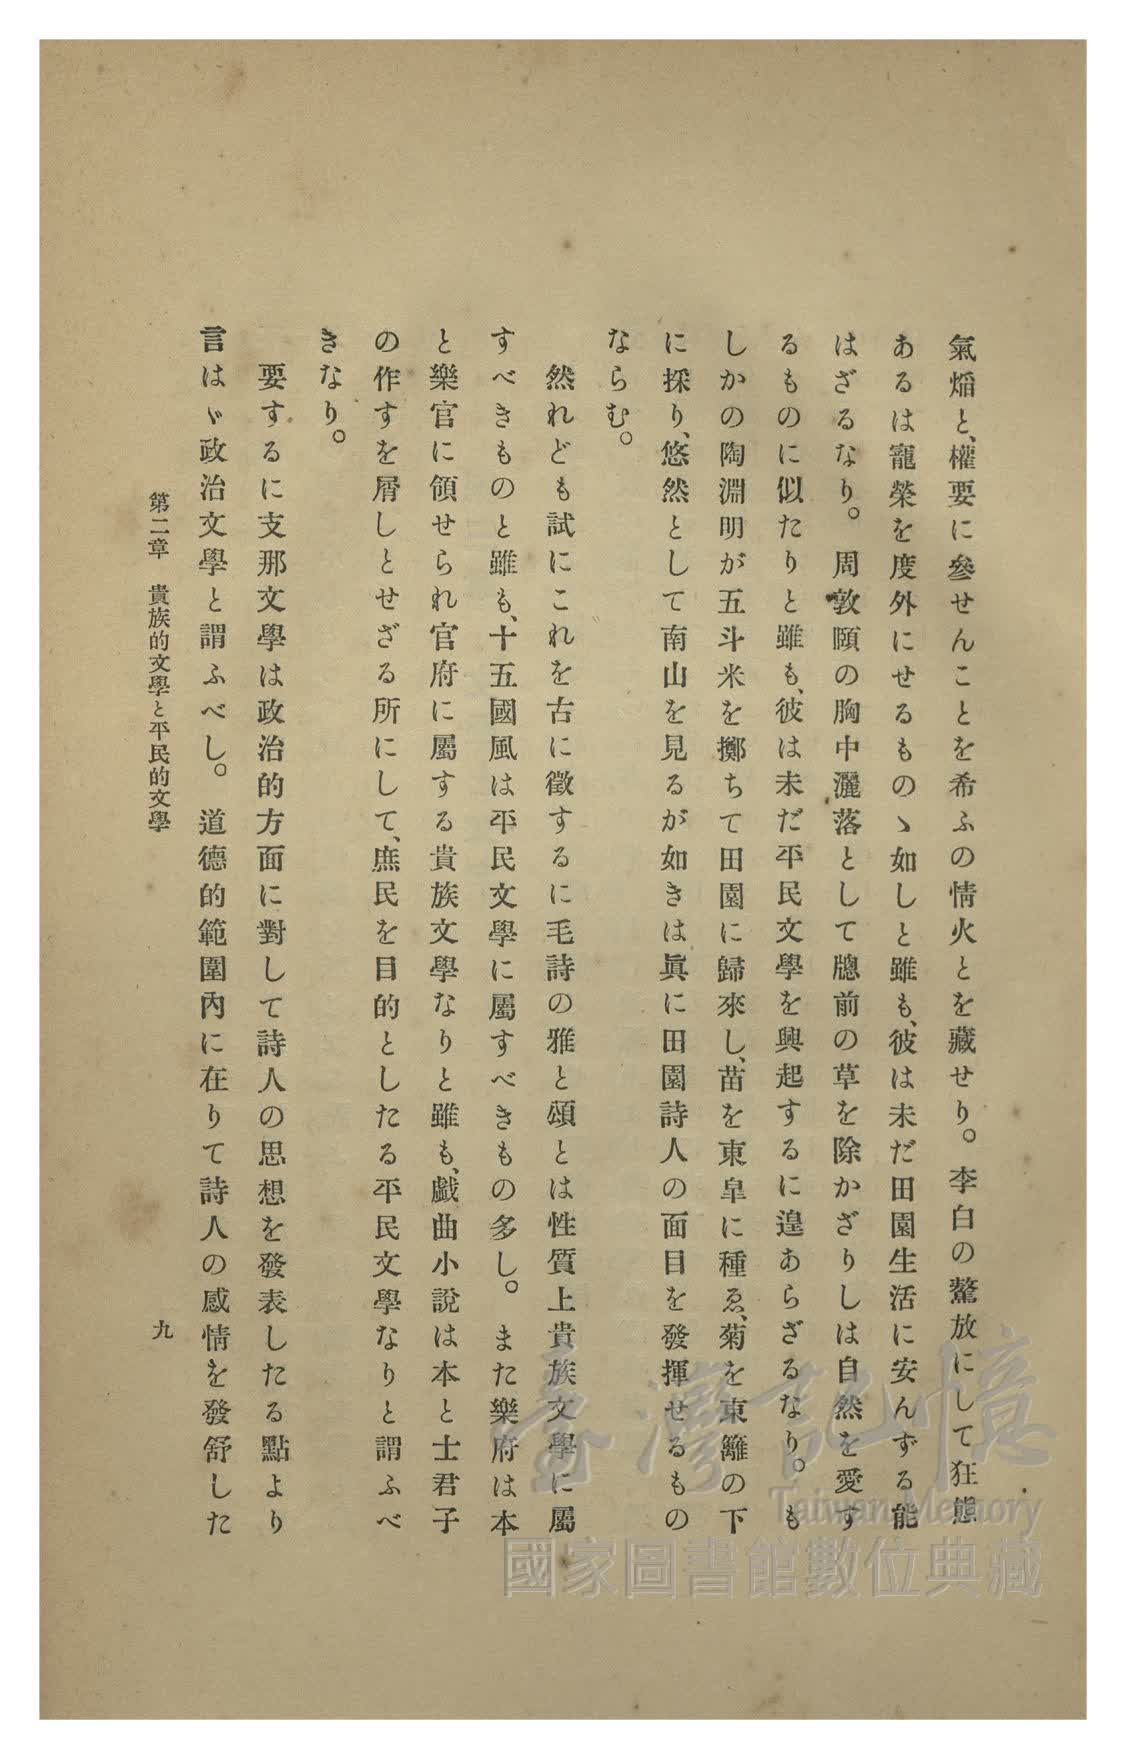 氣焰と、權要に參せんことを希ふの情火とを藏せり。李白の鰲放にして狂態
あるは寵榮を度外にせるものゝ如しと雖も、彼は未だ田園生活に安んずる能
はざるなり。周敦頤の胸中灑落として牕前の草を除かざりしは自然を愛す
るものに似たりと雖も、彼は未だ平民文學を興起するに遑あらざるなり。も
しかの陶淵明が五斗米を擲ちて田園に歸來し、苗を東皐に種ゑ、菊を東籬の下
に採り、悠然として南山を見るが如きは眞に田園詩人の面目を發揮せるもの
ならむ。
然れども試にこれを古に徵するに毛詩の雅と頌とは性質上貴族文學に屬
すべきものと雖も、十五國風は平民文學に屬すべきもの多し。また樂府は本
と樂官に領せられ官府に屬する貴族文學なりと雖も、戲曲小說は本と士君子
の作すを屑しとせざる所にして、庶民を目的としたる平民文學なりと謂ふべ
きなり。
要するに支那文學は政治的方面に對して詩人の思想を發表したる點より
言はゞ政治文學と謂ふべし。道德的範圍內に在りて詩人の感情を發舒した
第二章 貴族的文學と平民的文學
九
臺灣記憶
Taiwan Memory
國家圖書館數位典藏